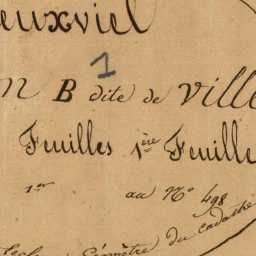 euxviel
1
n B dite de ville
Feuilles 1ère Feuille
1er au No 498
Géomètre du cadastre